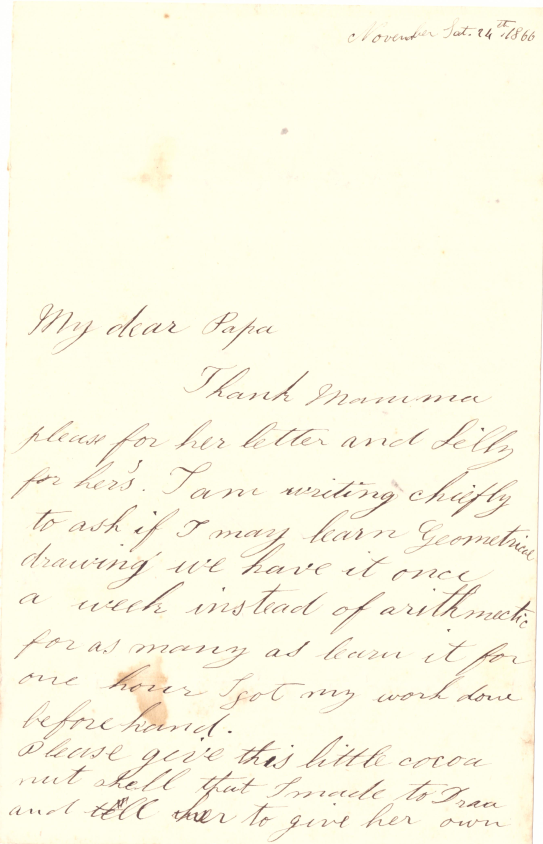 November Sat. 24th 1866
My dear Papa
Thank Mamma
please for her letter and Lilly
for her's. I am writing chiefly
to ask if I may learn Geometrical
drawing we have it once
a week instead of arithmectic
for as many as learn it for
one hour I got my work done
beforehand.
Please give this little cocoa
nut shell that I made to
and tell her to give her own